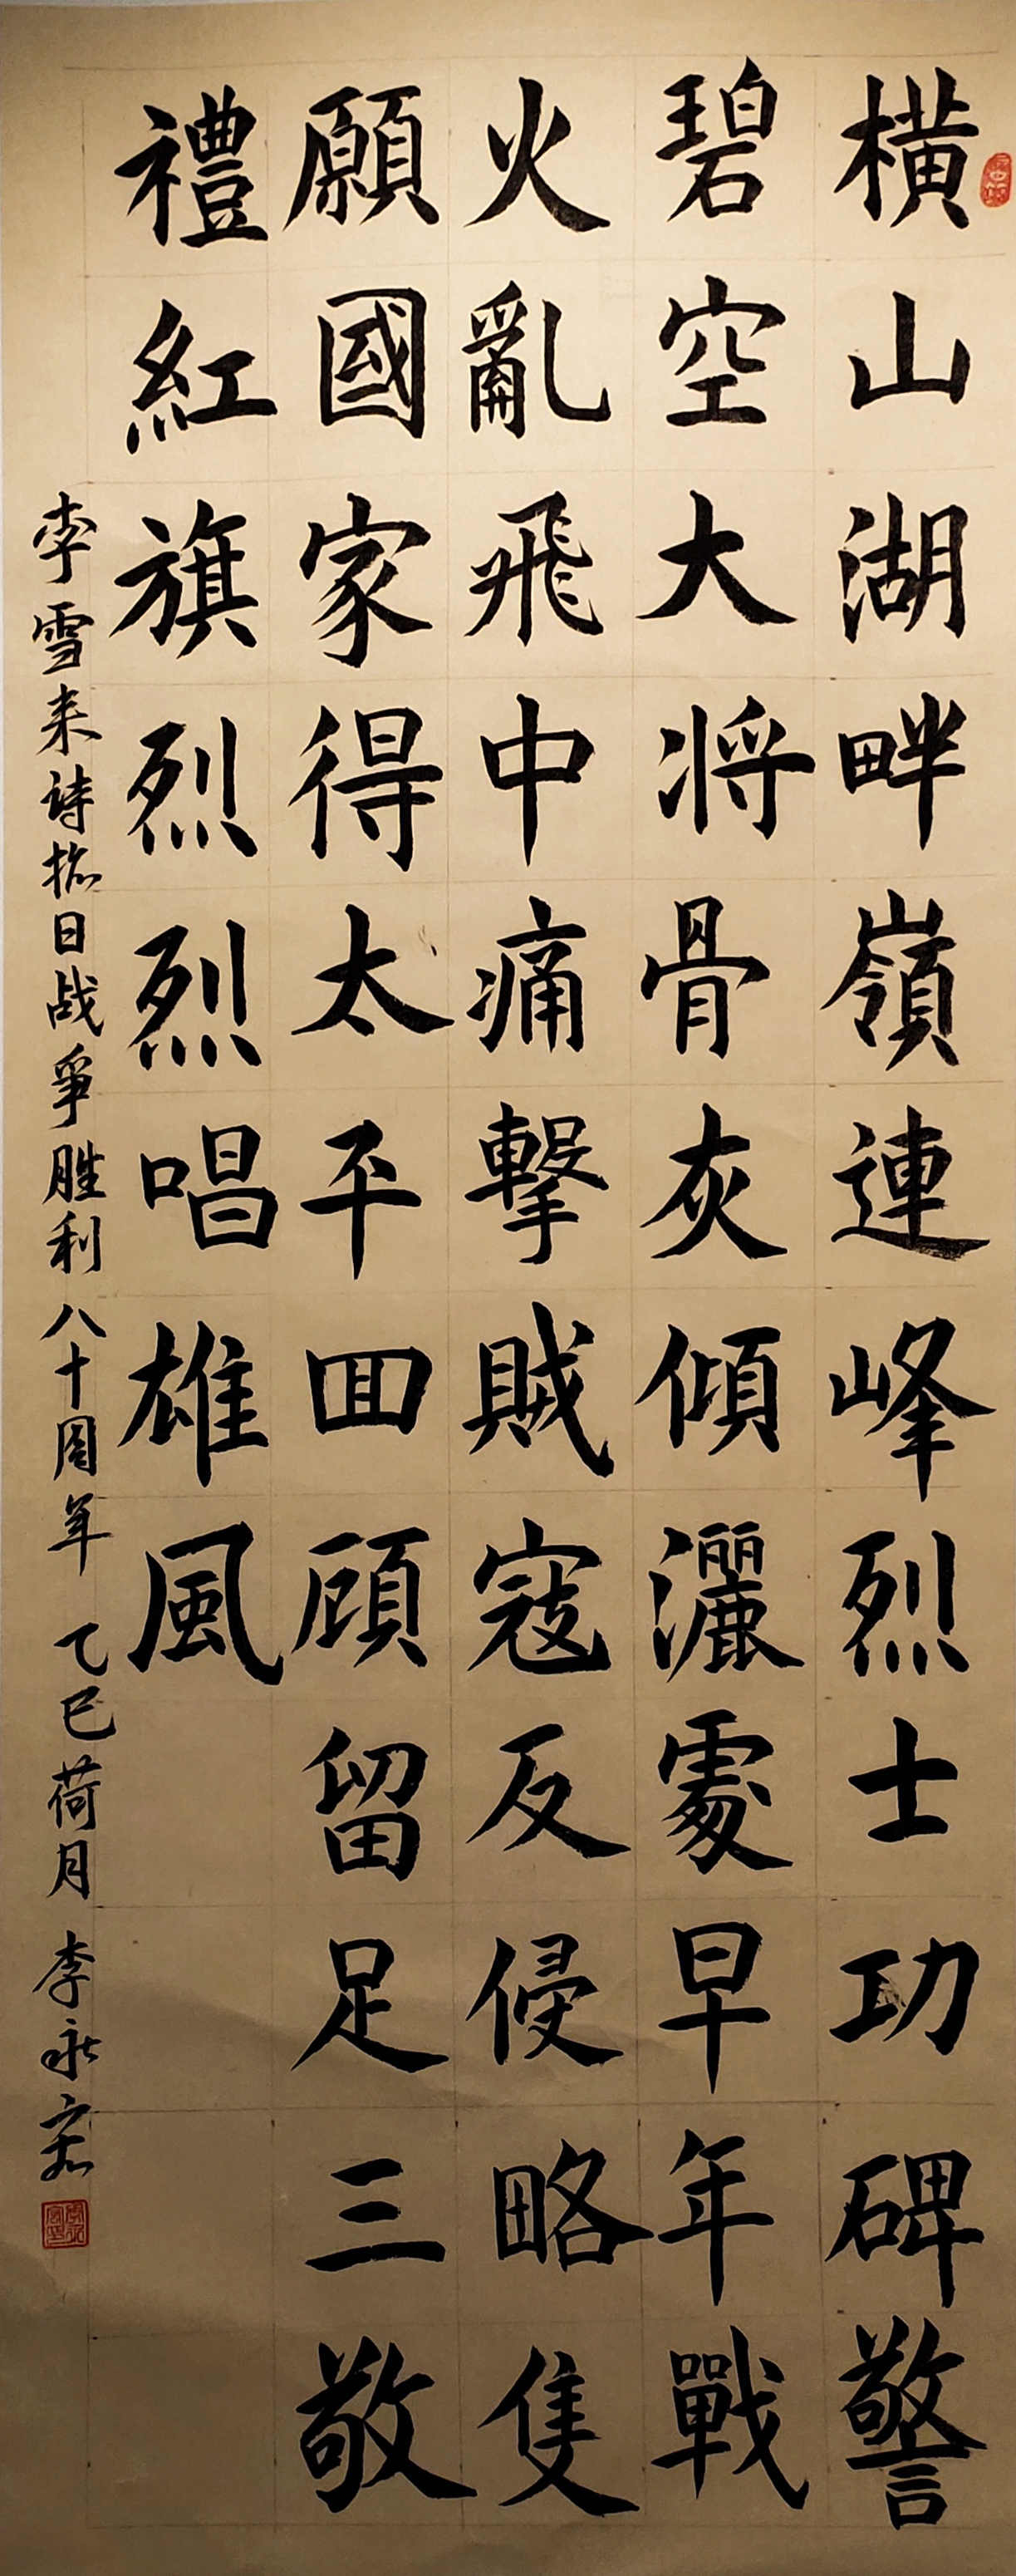 横山湖畔嶺連峰烈士功碑警
碧空大将骨灰傾灑處早年戰
火亂飛中痛擊賊寇反侵略隻
願國家得太平回顧留足三敬
禮紅旗烈烈唱雄風
李雪来詩抗日战爭胜利八十周年 乙巳荷月 李永宏